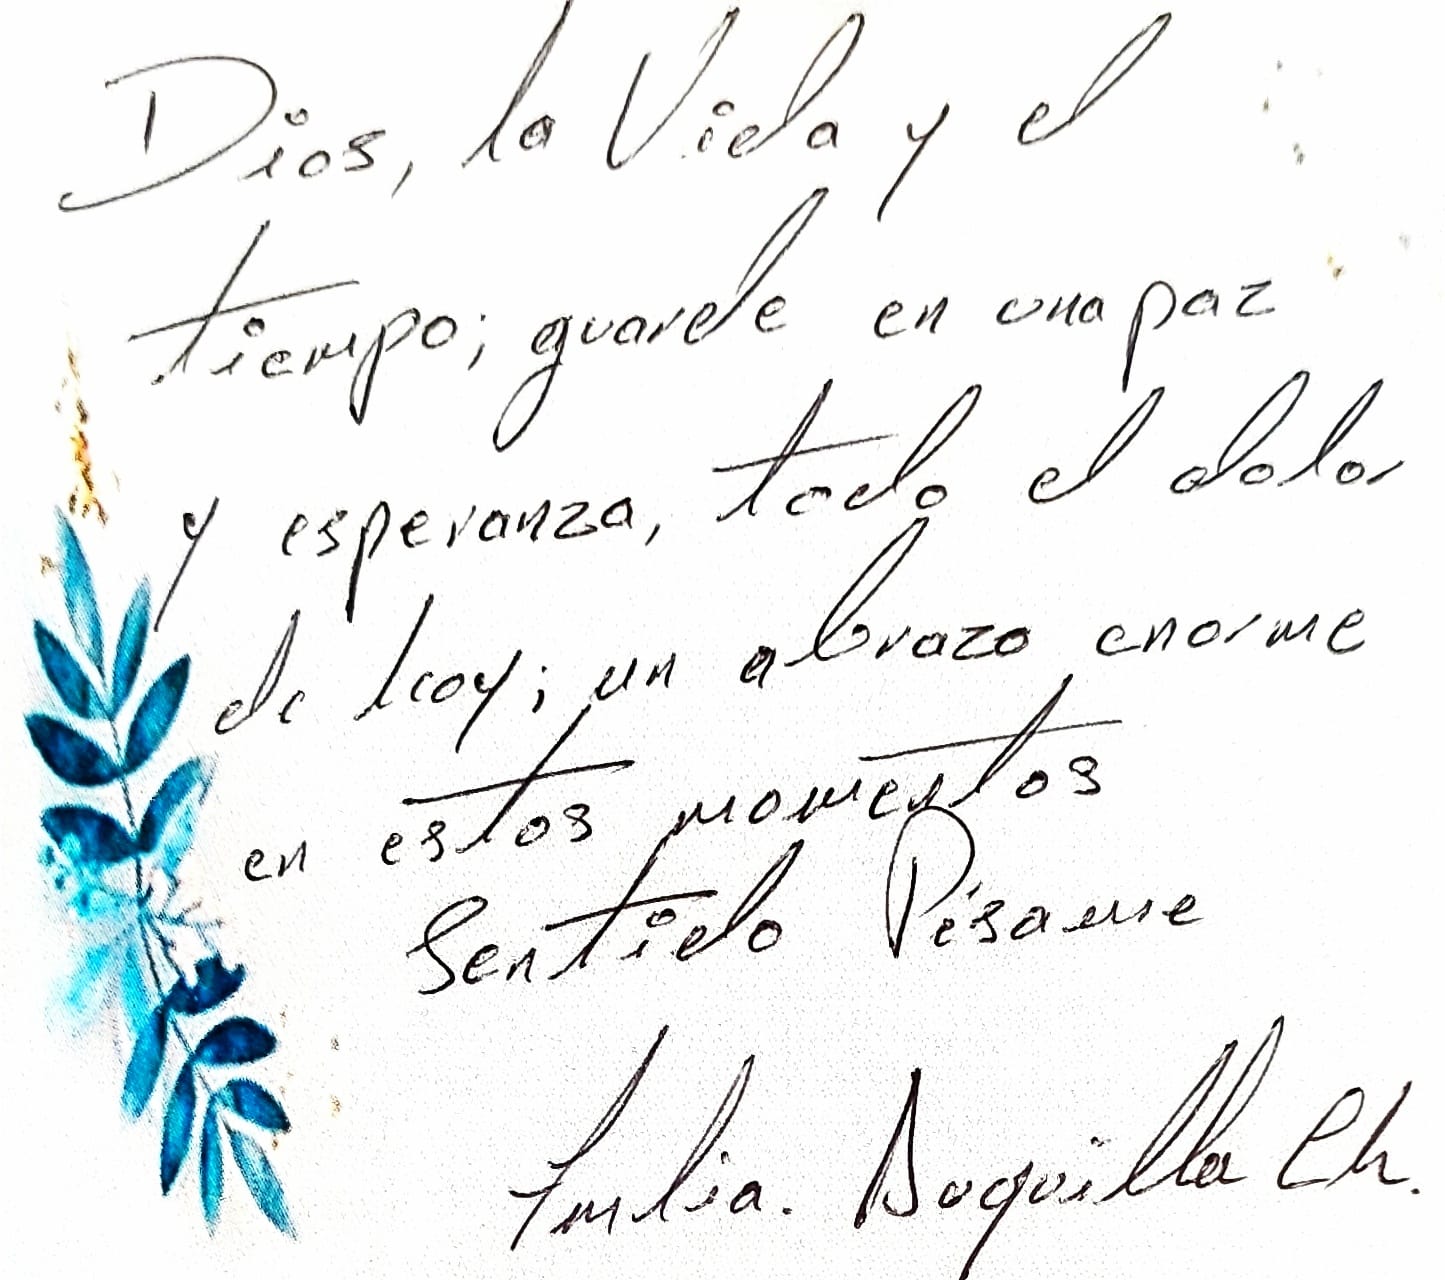 Dios, la Vida y el
tiempo; guarde en una paz
y esperanza, todo el dolor
de hoy; un abrazo enorme
en estos momentos
Sentido Pésame
Boquilla Ch.